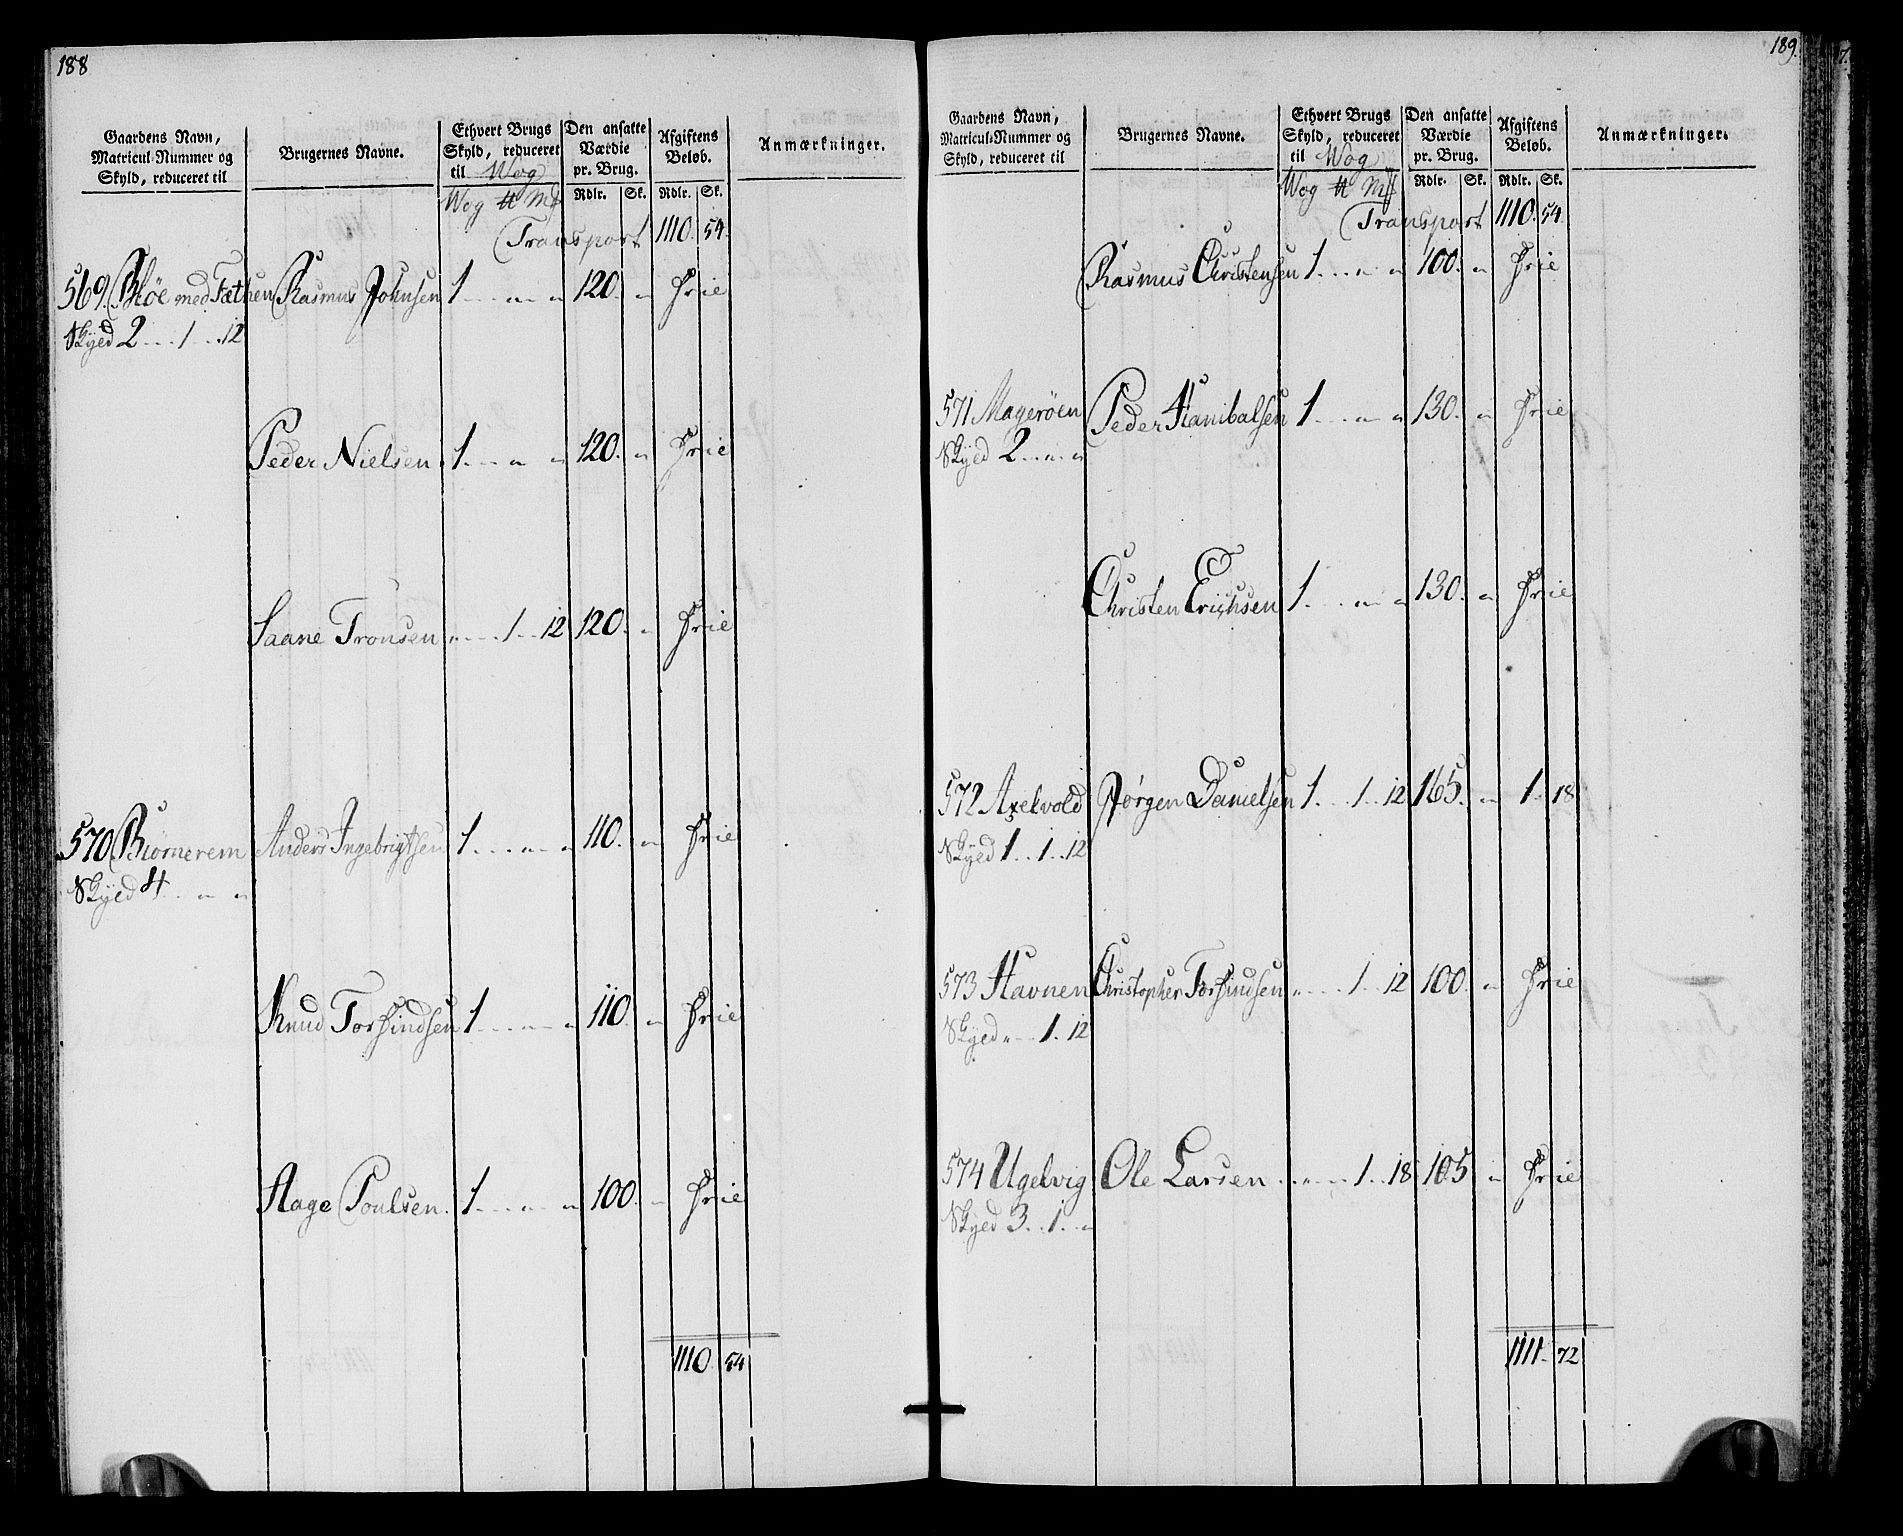 188
Gaardens Navn, Matricul-Nummer og Skyld, reduceret til | Brugernes Navne. | Ethvert Brugs Skyld, reduceret til Wog | Den ansatte Værdie pr. Brug. | Afgiftens Beløb. | Anmærkninger.
Wog ℔ Mk | Rdlr. | Sk. | Rdlr. | Sk.
Transport 1110. 54.
569 Bløe med Fæthen Rasmus Johnsen 1 . . . „ „ 120. „ Frie
Skyed 2 . . . 1 . . . 12
Peder Nielsen . 1 . . . „ „ 120. „ Frie
Saane Tronsen „ . . . 1 . . 12 120. „ Frie
570 Biørnerem Anders Ingebrigtsen 1 . . . „ „ 110. „ Frie
Skyed 4 . . „ „
Knud Torfindsen 1 . . . „ „ 110. „ Frie
Aage Poulsen. 1 . . . „ „ 100. „ Frie
1110. 54
189.
Gaardens Navn, Matricul-Nummer og Skyld, reduceret til | Brugernes Navne. | Ethvert Brugs Skyld, reduceret til Wog | Den ansatte Værdie pr. Brug. | Afgiftens Beløb. | Anmærkninger.
Wog ℔ Mk | Rdlr. | Sk. | Rdlr. | Sk.
Transport 1110. 54
Rasmus Christensen 1 . . . „ „ 100. „ Frie
571 Magerøen Peder Hanibalsen 1 . . . „ „ 130. „ Frie
Skyed 2 . . „ „
Christen Erichsen 1 . . . „ „ 130. „ Frie
572 Axelvold Jørgen Danielsen 1 . . . 1 . . 12 165. „ 1. 18
Skyed 1 . . 1 . . 12
573 Havnen Christopher Torfindsen „ . . . 1 . . 12 100. „ Frie
Skyed „ . . 1 . 12
574 Ugelvig Ole Larsen . . „ . . 1 . . 18 105 „ Frie
Skyed 3 . . 1 . . „
1111. 72